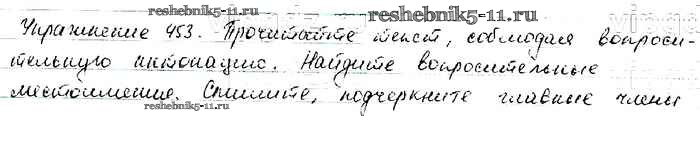 reshebnik5-11.ru
reshebnik5-11.ru
Упражнение 453. Прочитайте текст, соблюдая вопроси-
тельную интонацию. Найдите вопросительные
местоимения. Спишите, подчеркните главные члены
reshebnik5-11.ru